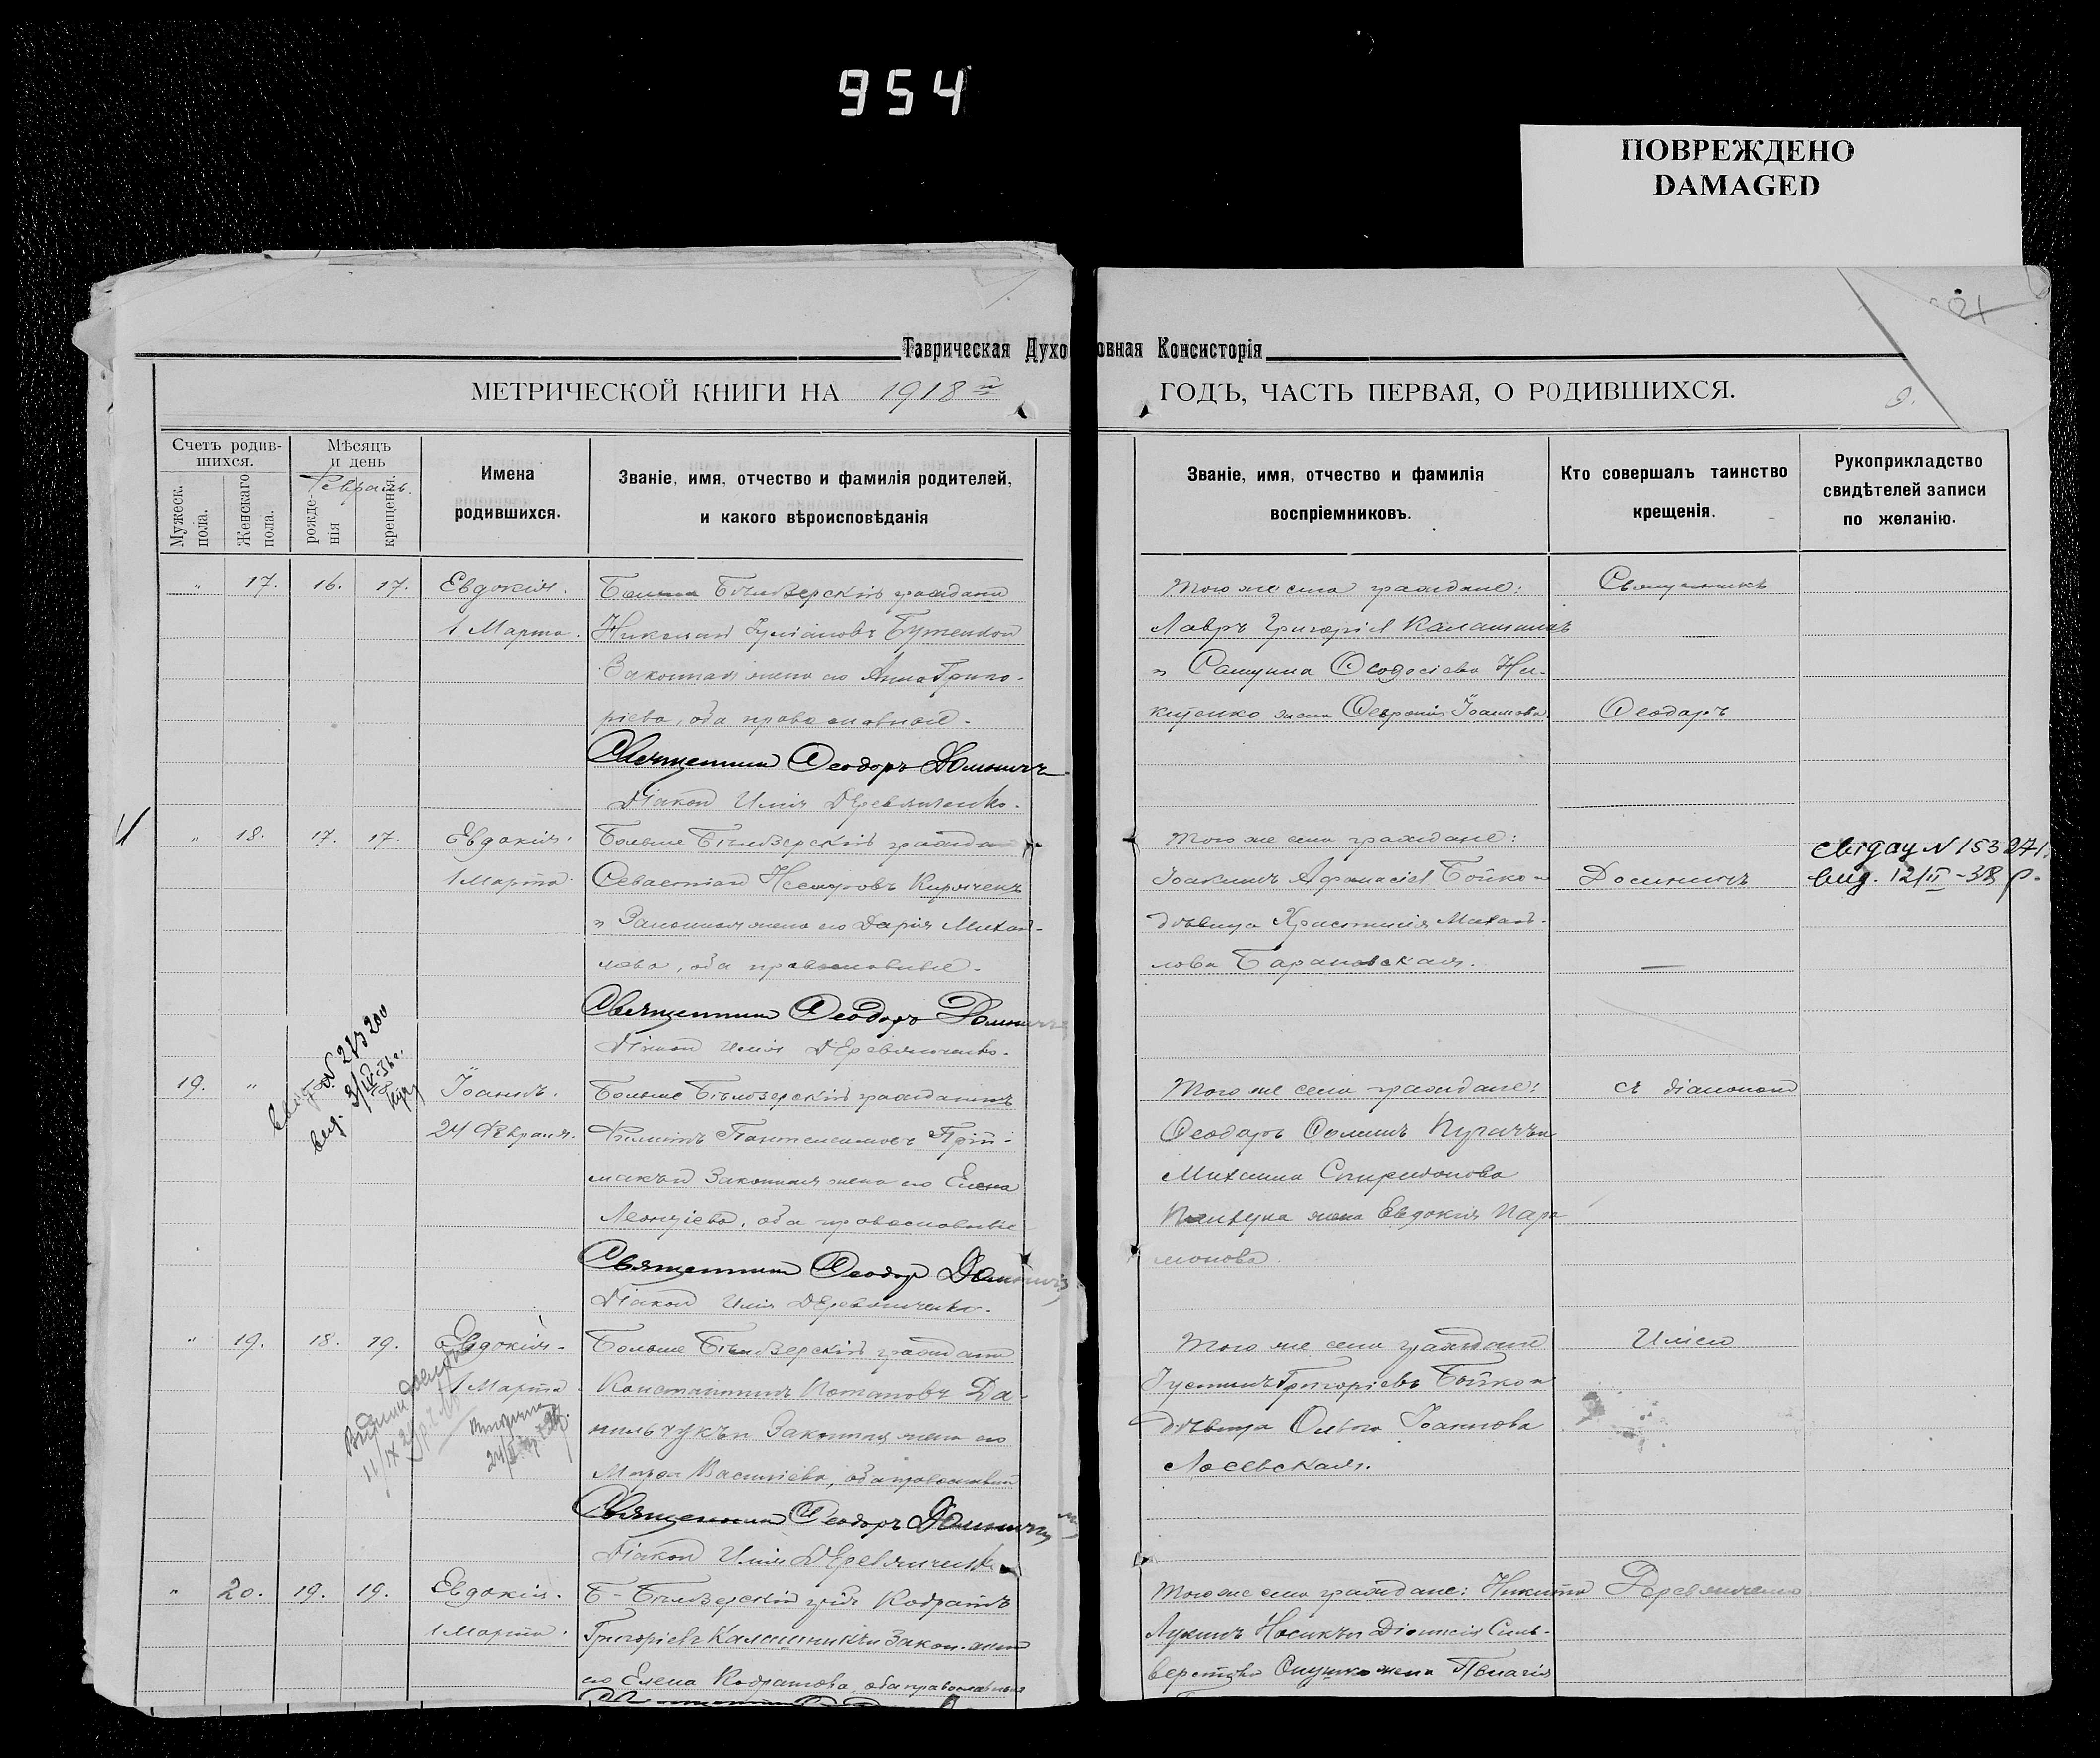 954
ПОВРЕЖДЕНО
DAMAGED
Таврическая Духовная Консисторія
МЕТРИЧЕСКОЙ КНИГИ НА 1918 й ГОДЪ, ЧАСТЬ ПЕРВАЯ, О РОДИВШИХСЯ.
Счетъ родив-
шихся.
Мужеск. пола.
Женскаго пола.
Мѣсяцъ
и день
Февраль.
рожде-
нія
крещенія.
Имена
родившихся.
Званіе, имя, отчество и фамилія родителей,
и какого вѣроисповѣданія
Званіе, имя, отчество и фамилія
воспріемниковъ.
Кто совершалъ таинство
крещенія.
Рукоприкладство
свидѣтелей записи
по желанію.
" 17. 16. 17. Евдокія.
1 Марта.
Бѣлозерскій гражданин
Николай Буте
Законная жена его Анна Григо-
рієва, оба православные.
Священник Ѳеодоръ Доминичъ
Діакон Илія Деревянченко.
Того же села граждане:
Лавръ Григоріев Калашник
Ѳеодосіева Ни-
китенко жена Іоаннова.
Священникъ
Ѳеодоръ
" 18. 17. 17. Евдокія.
1 Марта
Больше Бѣлозерскій граждан
Севастіан Кириченк
и Законная жена его Дарія Михаи-
лова, оба православные.
Священник Ѳеодоръ Доминичъ
Діакон Илія Деревянченко.
Того же села граждане:
Іоакимъ Аѳанасіев Бойко и
дѣвица Христинія Михаи-
лова Барановская.
Доминичъ
N 153271.
вид. 12/II-38 р.
N 273200
вид. 3/IV-36
19. " Іоаннъ.
24 Февраля.
Больше Бѣлозерскій гражданинъ
Филиппъ Пантелеимоновъ Прій-
макъ и Законная жена его Елена
Леонтіева, оба православные
Священник Ѳеодор Доминичъ
Діакон Илія Деревянченко.
Того же села граждане:
Ѳеодоръ Ѳоминъ Пугачъ и
Михаила Спиридонова
жена Евдокія Пара
монова.
съ діаконом
" 19. 18. 19. Евдокія.
1 Марта
Больше Бѣлозерскій граждани
Константинъ Потаповъ Да-
нильчукъ и Законная жена его
Василіева, оба православные
Священник Ѳеодоръ Доминичъ
Діакон Илія Деревянченко
Того же села граждане
Іустинъ Григоріевъ Бойко и
дѣвица Ольга Іоаннова
Лосевская.
Иліею
" 20. 19. 19. Евдокія.
1 Марта.
Б-Бѣлозерскій гр. Кодратъ
Григоріевъ Калашникъ и Закон. жена
его Елена Кодратова, оба православные
Того же села граждане: Никита
Лукинъ Носикъ и Діонисія Силь-
верстова жена Пелагія
Деревянченко